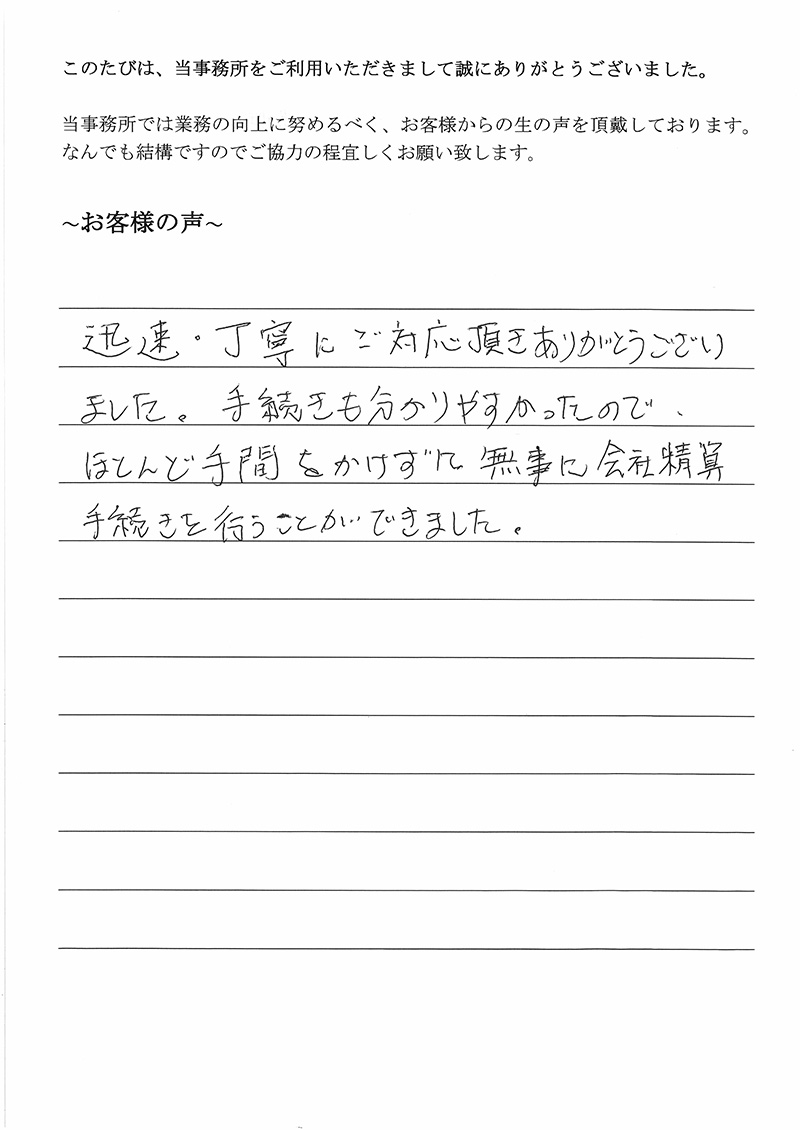 このたびは、当事務所をご利用いただきまして誠にありがとうございました。
当事務所では業務の向上に努めるべく、お客様からの生の声を頂戴しております。
なんでも結構ですのでご協力の程宜しくお願い致します。
～お客様の声～
迅速・丁寧にご対応頂きありがとうござい
ました。手続きも分かりやすかったので、
ほとんど手間をかけずに無事に会社精算
手続きを行うことができました。